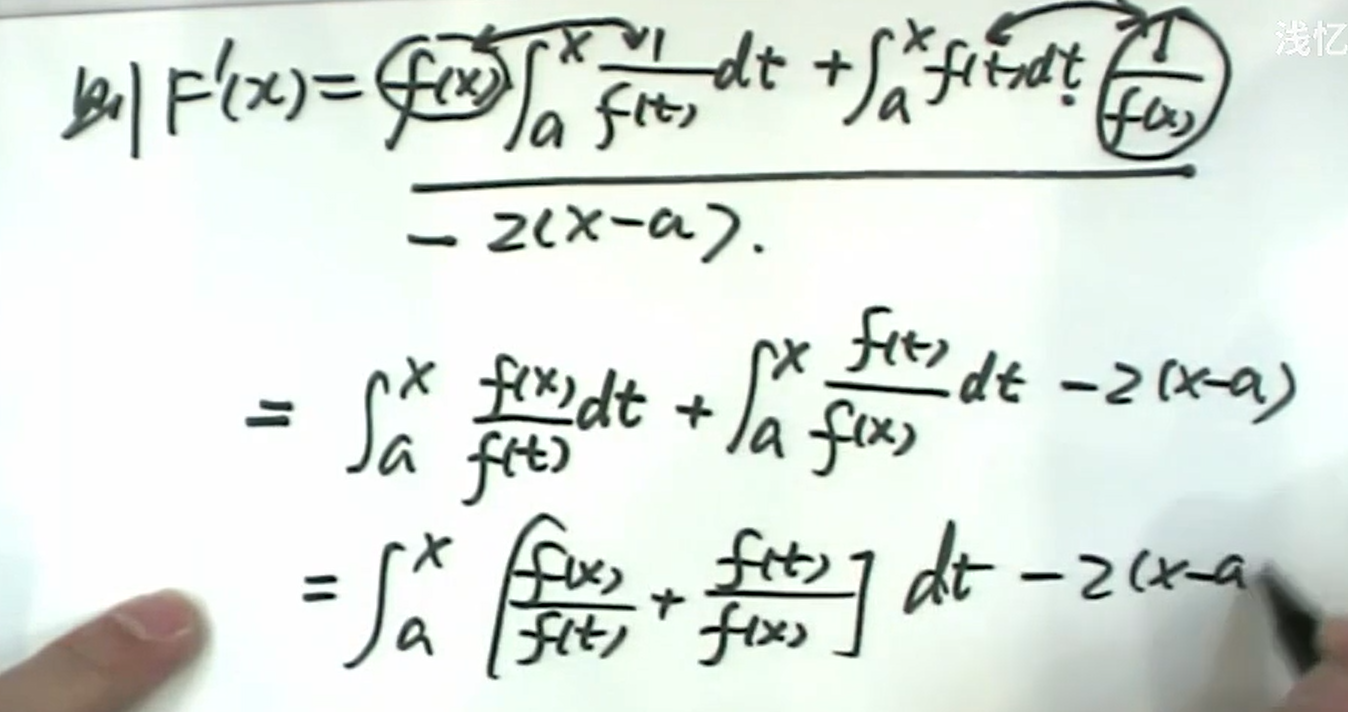 浅忆
则 F'(x) = f(x) ∫_a^x 1/f(t) dt + ∫_a^x f(t)dt · 1/f(x)
- 2(x-a).
= ∫_a^x f(x)/f(t) dt + ∫_a^x f(t)/f(x) dt - 2(x-a)
= ∫_a^x [f(x)/f(t) + f(t)/f(x)] dt - 2(x-a